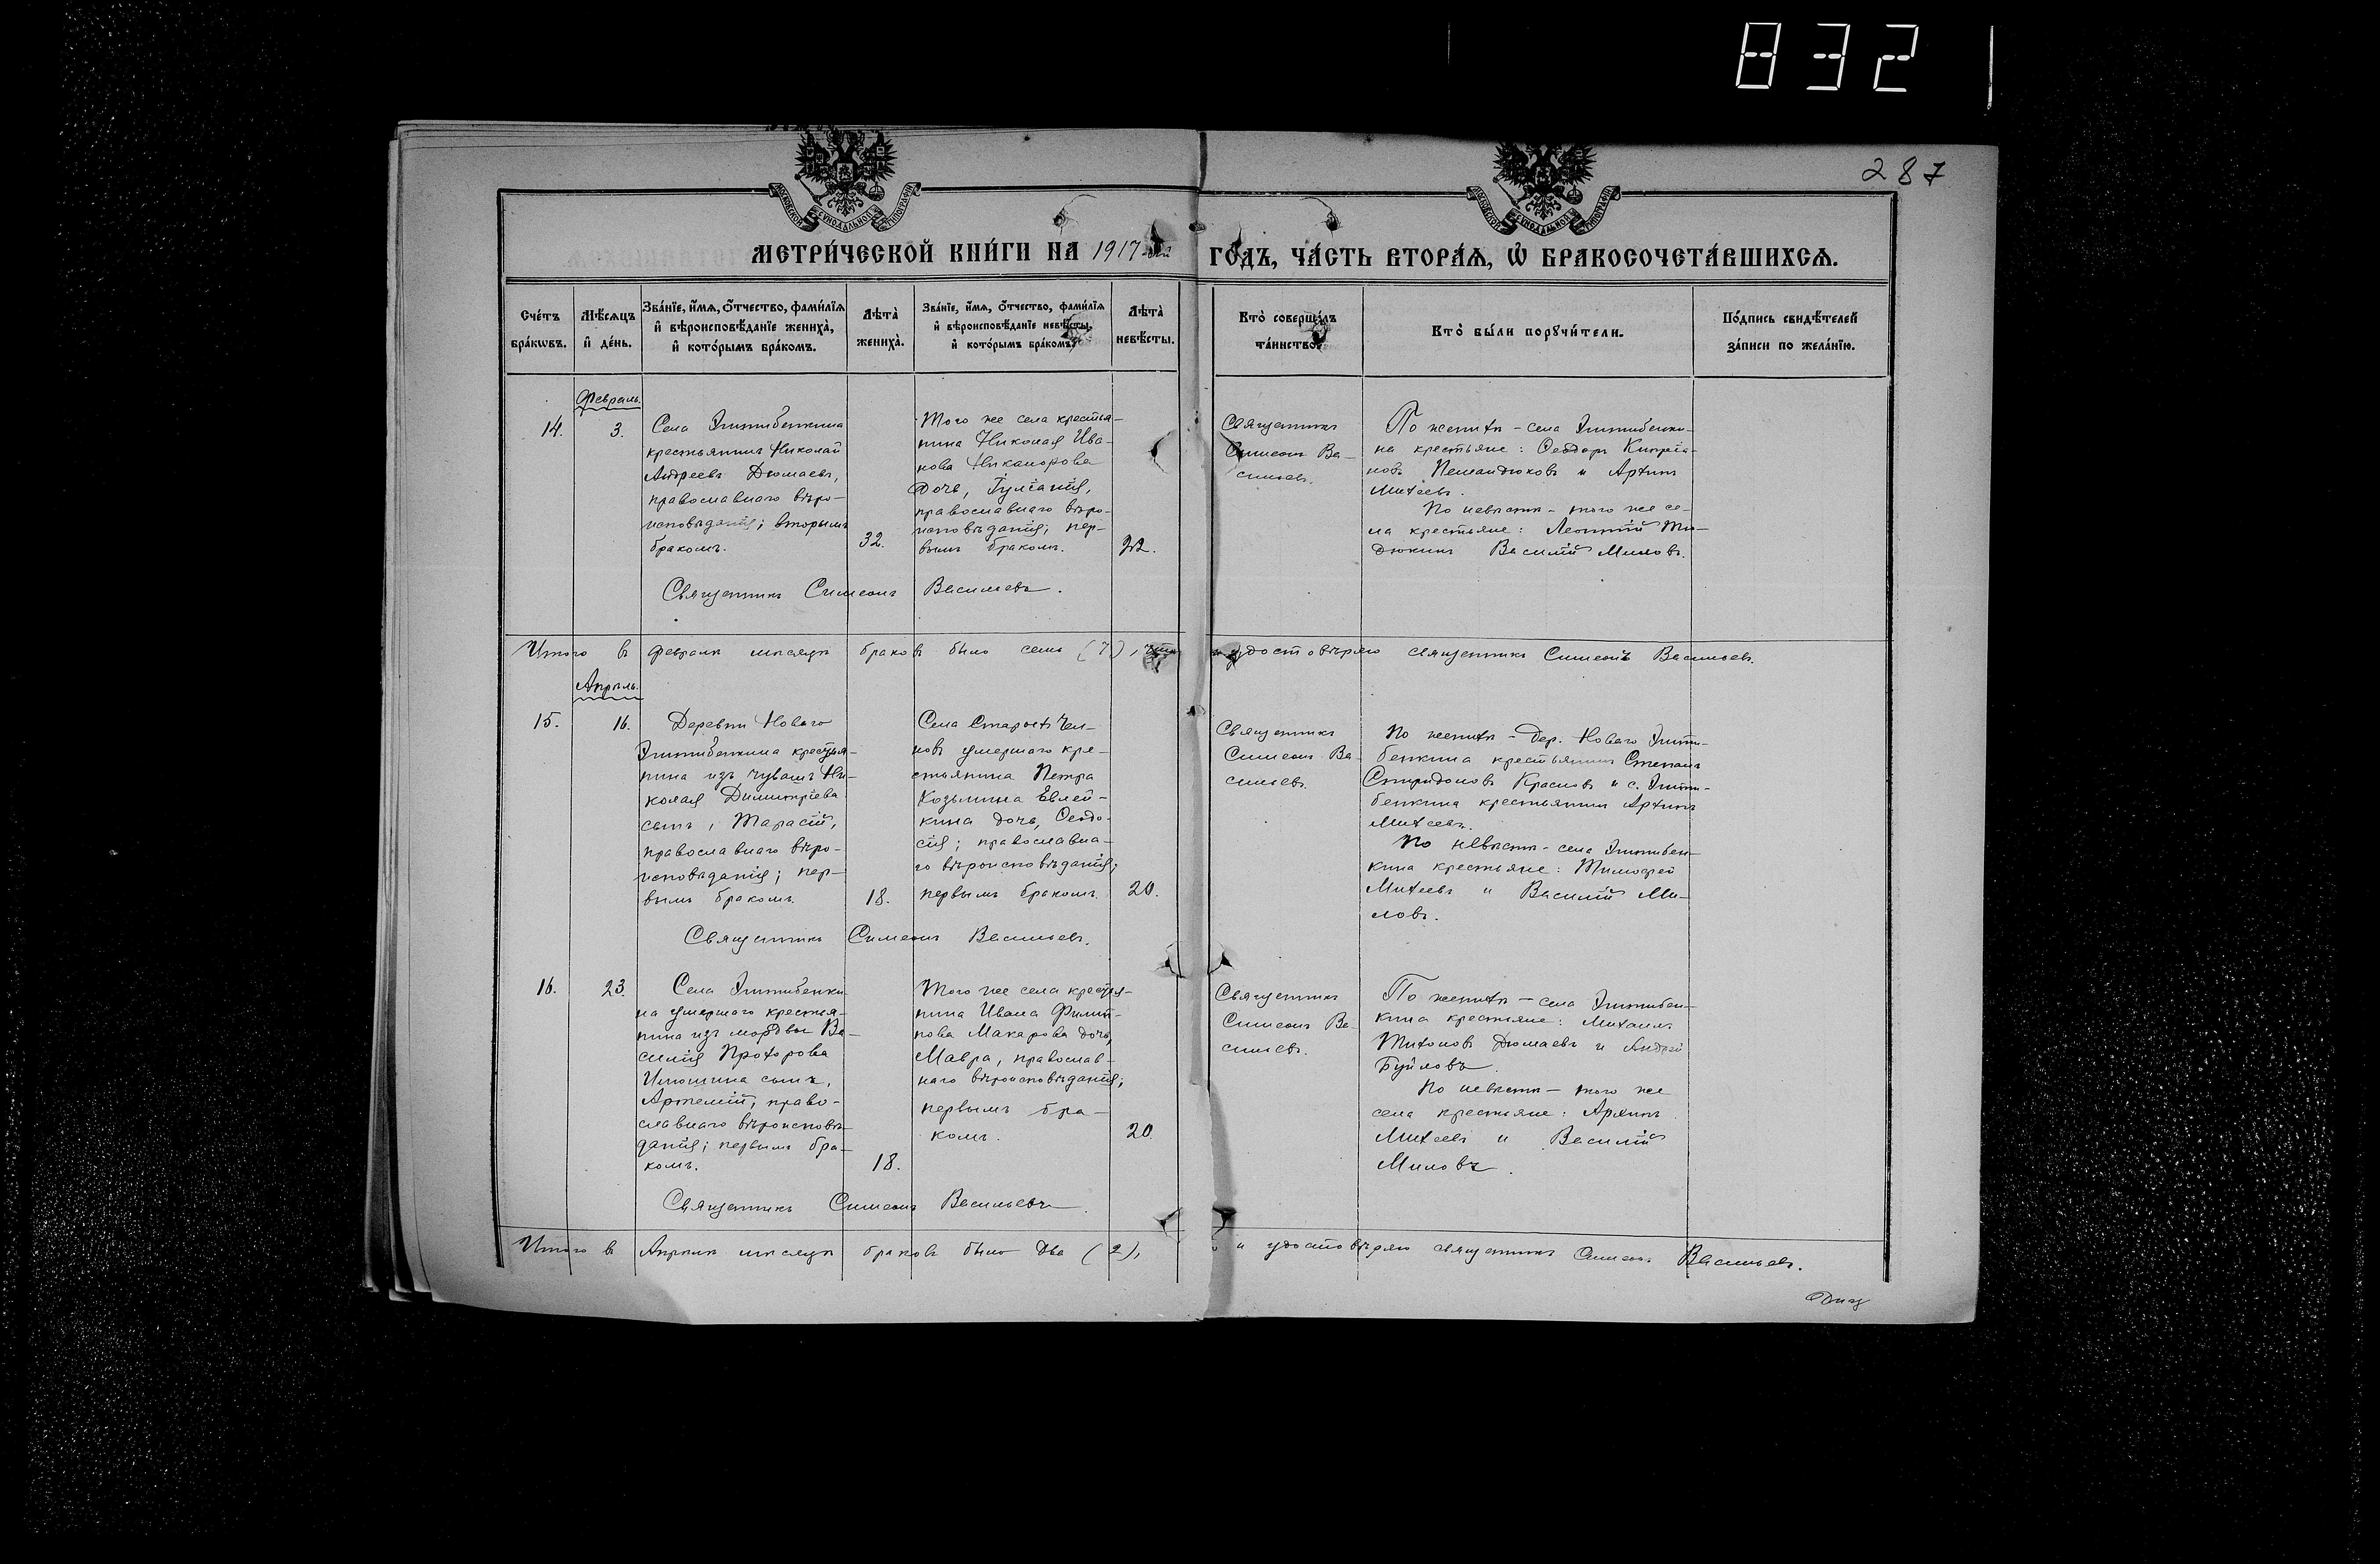 832
287
МОСКОВСКОЙ СѴНОДАЛЬНОЙ ТИПОГРАФІИ
МОСКОВСКОЙ СѴНОДАЛЬНОЙ ТИПОГРАФІИ
МЕТРИ́ЧЕСКОЙ КНИ́ГИ НА 1917 ГО́ДЪ, ЧА́СТЬ ВТОРА́Ѧ, Ѽ БРАКОСОЧЕТА́ВШИХСѦ.
Сче́тъ
бра́кѡвъ.
Мѣ́сѧцъ
и҆ де́нь.
Зва́нїе, и҆́мѧ, ѻ҆́тчество, фами́лїѧ
и҆ вѣроисповѣ́данїе жениха̀,
и҆ кото́рымъ бра́комъ.
Лѣта̀
жениха̀.
Зва́нїе, и҆́мѧ, ѻ҆́тчество, фами́лїѧ
и҆ вѣроисповѣ́данїе невѣ́сты,
и҆ кото́рымъ бра́комъ.
Лѣта̀
невѣ́сты.
Кто̀ соверши́лъ
та́инство.
Кто̀ бы́ли порꙋчи́тели.
По́дпись свидѣ́телей
за́писи по жела́нїю.
Февраль.
14.
3.
Села Эштебенкина
крестьянинъ Николай
Андреевъ Дюмаевъ,
православнаго вѣро-
исповѣданія; вторымъ
бракомъ.
32.
Того же села крестья-
нина Николая Ива-
нова Никанорова
дочь, Іуліанія,
православнаго вѣро-
исповѣданія; пер-
вымъ бракомъ.
22.
Священникъ
Симеонъ Ва-
сильевъ.
По женихѣ - села Эштебенки-
на крестьяне: Ѳеодоръ Кипріа-
новъ и Архипъ
Михеевъ.
По невѣстѣ - того же се-
ла крестьяне: Леонтій Ти-
дюкинъ Василій Миловъ.
Священникъ Симеонъ Васильевъ.
Итого в феврале мѣсяцѣ браковъ было семь (7), что и удостовѣряю священникъ Симеонъ Васильевъ.
Апрѣль.
15.
16.
Деревни Новаго
Эштебенкина крестья-
нина изъ чувашъ Ни-
колая Димитріева
сынъ, Тарасій,
православнаго вѣро-
исповѣданія; пер-
вымъ бракомъ.
18.
Села Старыхъ Чел-
новъ умершаго кре-
стьянина Петра
Козьмина Евлей-
кина дочь, Ѳеодо-
сія; православна-
го вѣроисповѣданія;
первымъ бракомъ.
20.
Священникъ
Симеонъ Ва-
сильевъ.
По женихѣ - дер. Новаго Эште-
бенкина крестьянинъ Степанъ
Спиридоновъ Красновъ и с. Эште-
бенкина крестьянин Архипъ
Михеевъ.
По невѣстѣ - села Эштебен-
кина крестьяне: Тимофей
Михеевъ и Василій Ми-
ловъ.
Священникъ Симеонъ Васильевъ.
16.
23.
Села Эштебенки-
на умершаго крестья-
нина изъ мордвы Ва-
силія Прохорова
Илюшина сынъ,
Артемій, право-
славнаго вѣроисповѣ-
данія; первымъ бра-
комъ.
18.
Того же села крестья-
нина Ивана Филип-
пова Макарова дочь,
Мавра, православ-
наго вѣроисповѣданія;
первымъ бра-
комъ.
20.
Священникъ
Симеонъ Ва-
сильевъ.
По женихѣ - села Эштебен-
кина крестьяне: Михаилъ
Тихоновъ Дюмаевъ и Андрей
Буйловъ.
По невѣстѣ - того же
села крестьяне: Архипъ
Михеевъ и Василій
Миловъ.
Священникъ Симеонъ Васильевъ.
Итого в Апрѣлѣ мѣсяцѣ браковъ было два (2), и удостовѣряю священникъ Симеонъ Васильевъ.